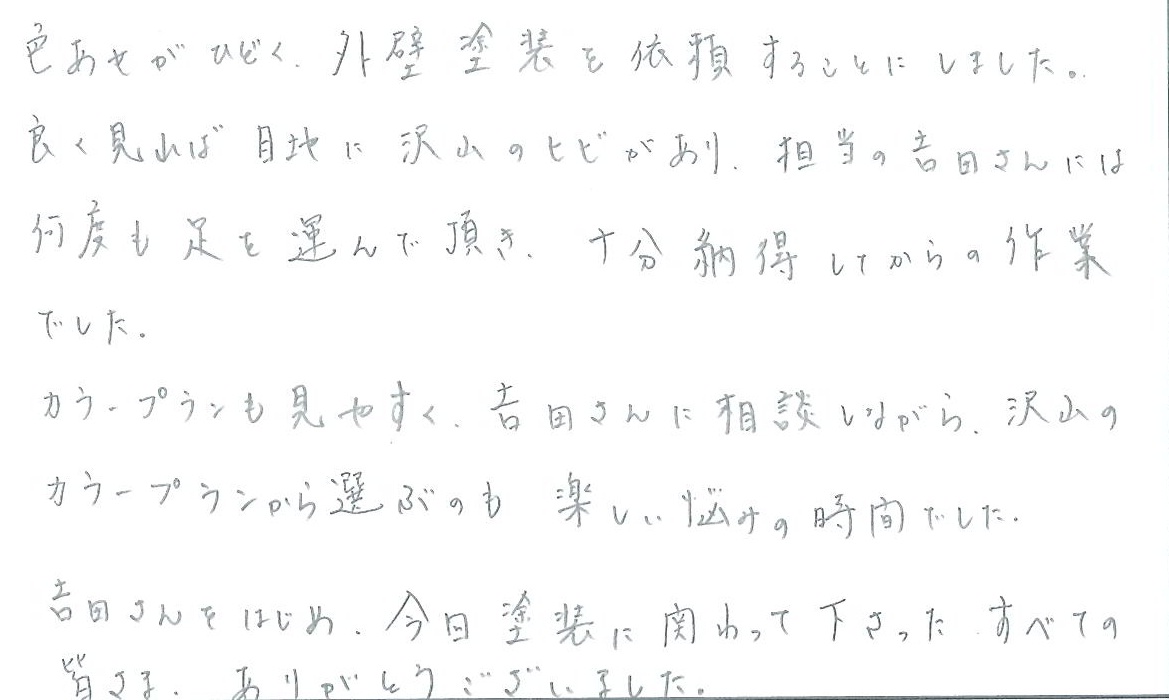 色あせがひどく、外壁塗装を依頼することにしました。
良く見れば目地に沢山のヒビがあり、担当の吉田さんには
何度も足を運んで頂き、十分納得してからの作業
でした。
カラープランも見やすく、吉田さんに相談しながら、沢山の
カラープランから選ぶのも楽しい悩みの時間でした。
吉田さんをはじめ、今回塗装に関わって下さったすべての
皆さま、ありがとうございました。